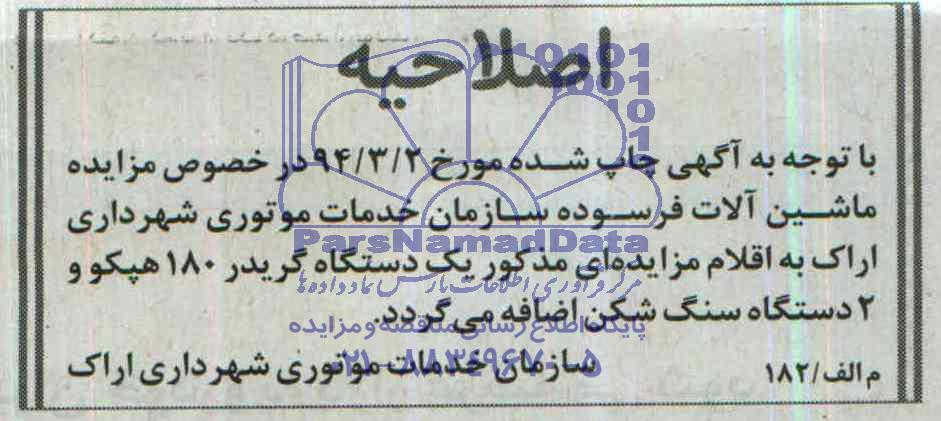 اصلاحیه
با توجه به آگهی چاپ شده مورخ ۹۴/۳/۲ در خصوص مزایده
ماشین آلات فرسوده سازمان خدمات موتوری شهرداری
اراک به اقلام مزایده‌ای مذکور یک دستگاه گریدر ۱۸۰ هپکو و
۲ دستگاه سنگ شکن اضافه می گردد.
م الف/۱۸۲
سازمان خدمات موتوری شهرداری اراک
ParsNamadData
مرکز فرآوری اطلاعات پارس نماد داده ها
پایگاه اطلاع رسانی مناقصه و مزایده
۰۲۱-۸۸۳۴۹۶۷۰-۵